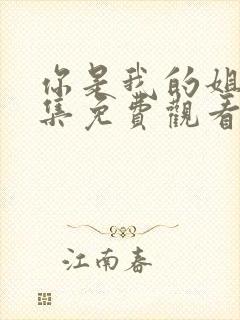 你是我的姐
集免費觀看
江南春